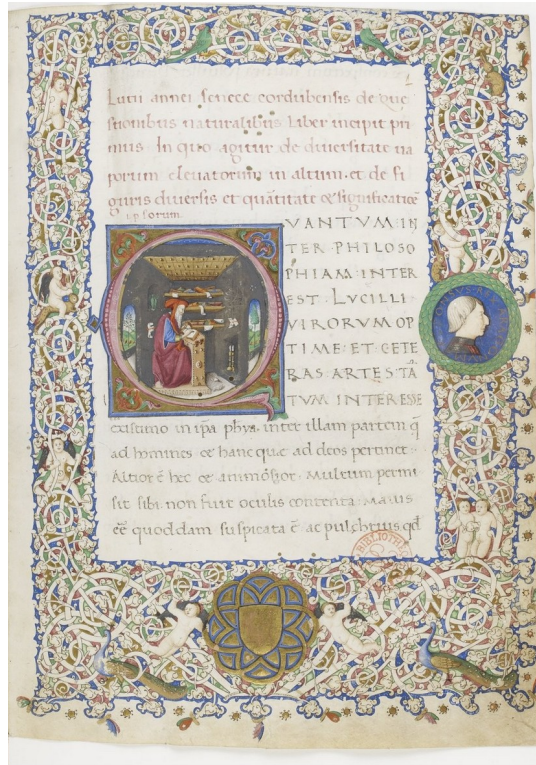 Lutii annei senece cordubensis de que
stionibus naturalibus liber incipit pri
mus. In quo agitur de diversitate va
porum elevatorum in altum. et de fi
guris diversis et quãtitate & significatiõe
ipsorum.
QUANTVM IN
TER PHILOSO
PHIAM INTER
EST. LUCILLI
VIRORVM OP
TIME ET CETE
RAS ARTES. TÃ
TVM INTERESSE
existimo in ip̃a phya. inter illam partem q̃
ad homines & hanc que ad deos pertinet.
Altior ẽ hec & animosior. Multum permi
sit sibi non fuit oculis contenta. Maius
eẽ quoddam suspicata ẽ ac pulchrius qđ
BIBLIOTHE